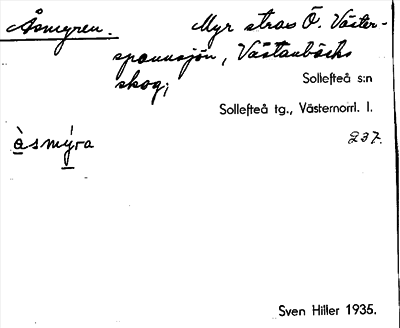 Åsmyren. Myr strax Ö. Väster-
spannsjön, Västanbäcks
skog;
Sollefteå s:n
Sollefteå tg., Västernorrl. l.
àsmýra 237.
Sven Hiller 1935.